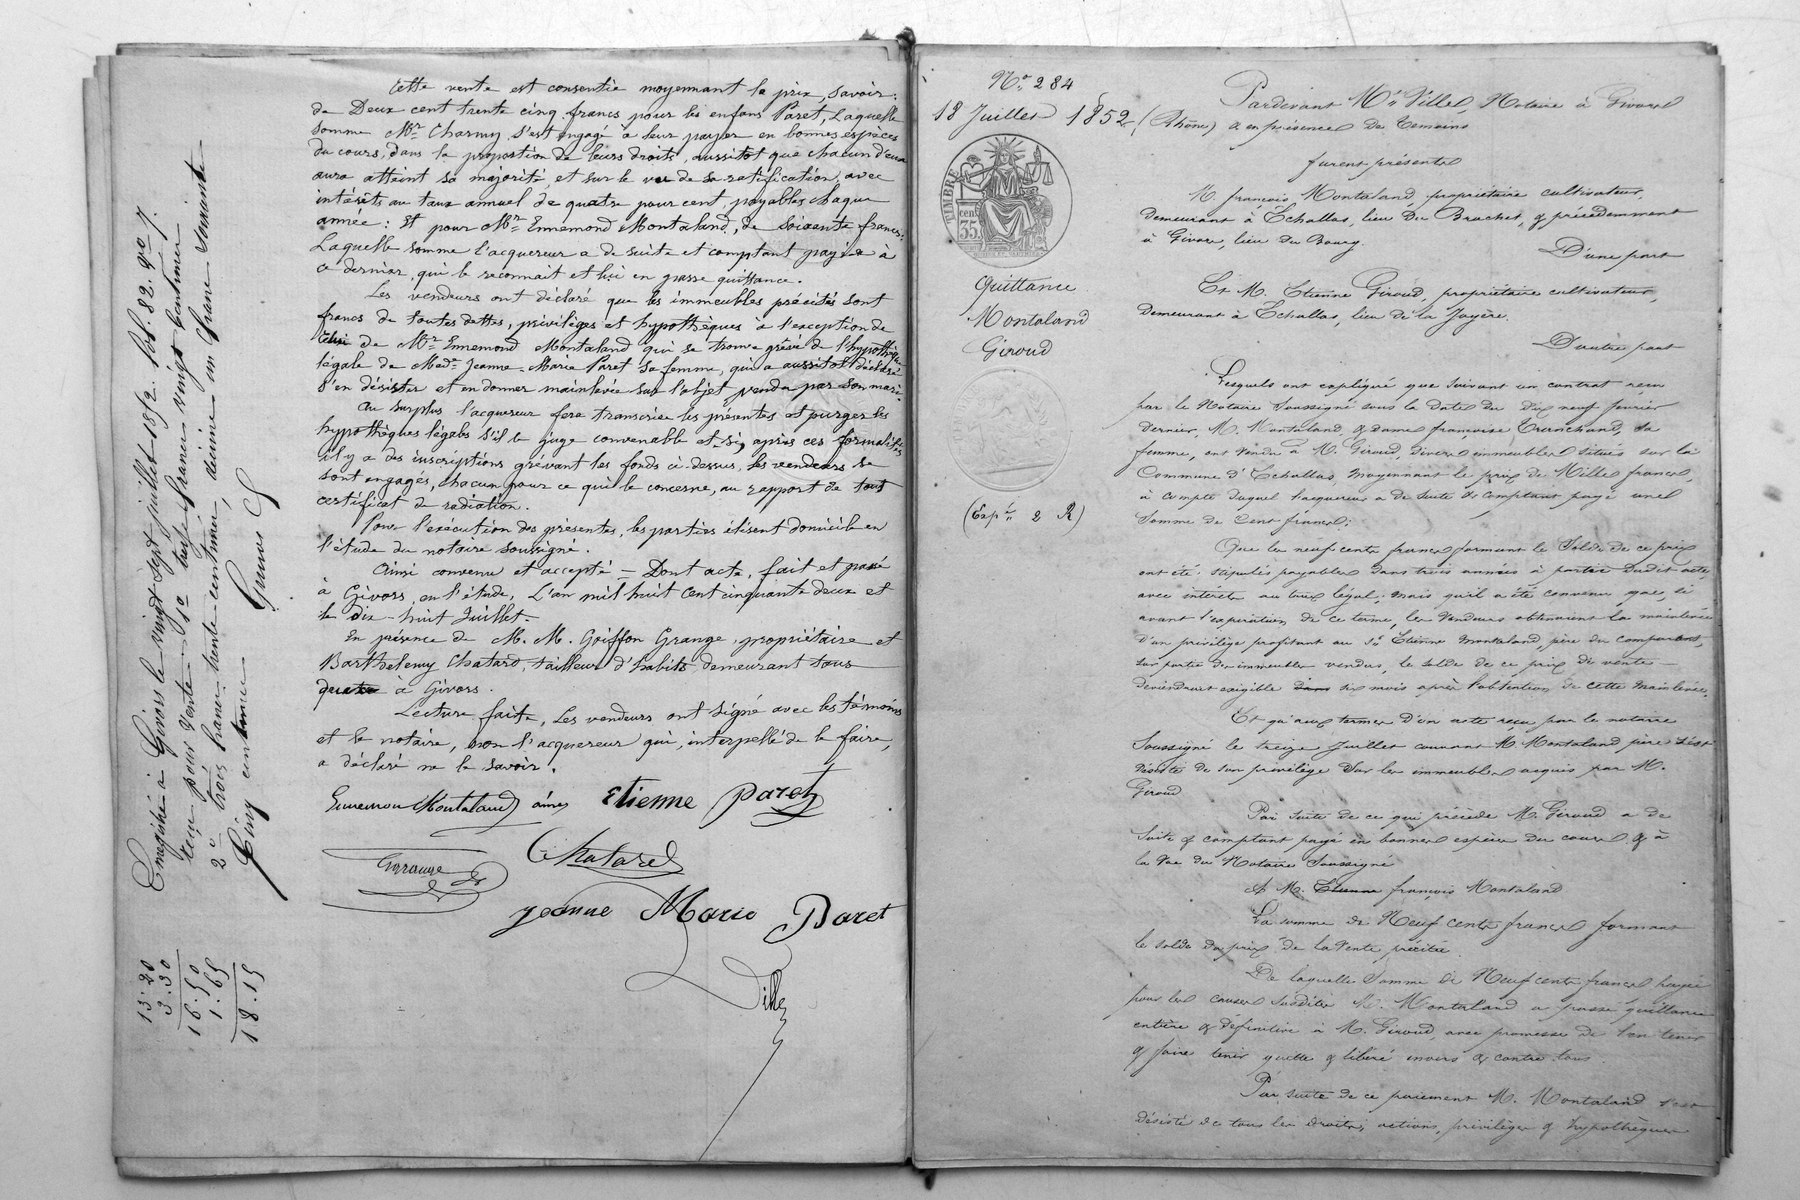 Cette vente est consentie moyennant le prix, savoir:
de Deux cent trente cinq francs pour les enfans Paret, Laquelle
somme Mr. Charmy s'est engagé à leur payer en bonnes espèces
du cours, dans la proportion de leurs droits, aussitot que chacun d'eux
aura atteint sa majorité, et sur le vu de sa ratification, avec
intérêts au taux annuel de quatre pour cent, payables chaque
année: Et pour Mr. Ennemond Montaland, de Soixante francs:
Laquelle somme l'acquereur a de suite et comptant payée à
ce dernier, qui le reconnait et lui en passe quittance.
Les vendeurs ont déclaré que les immeubles précités sont
francs de toutes dettes, privilèges et hypothèques à l'exception de
celui de Mr. Ennemond Montaland qui se trouve grévé de l'hypothèque
légale de Made. Jeanne-Marie Paret sa femme, qui a aussitot déclaré
s'en désister et en donner mainlevée sur l'objet vendu par son mari.
Au surplus l'acquereur fera transcrire les présentes et purger les
hypothèques légales s'il le juge convenable et si, après ces formalités
il y a des inscriptions grévant les fonds ci-dessus, les vendeurs se
sont engagés, chacun pour ce qui le concerne, au rapport de tout
certificat de radiation.
Pour l'exécution des présentes, les parties élisent domicile en
l'étude du notaire soussigné.
Ainsi convenu et accepté = Dont acte, fait et passé
à Givors, en l'étude, L'an mil huit cent cinquante deux et
le dix-huit Juillet.
En présence de M. M. Goiffon Grange, propriétaire et
Barthelemy Chatard, tailleur d'habits, demeurant tous
à Givors.
Lecture faite, Les vendeurs ont signé avec les témoins
et le notaire, non l'acquereur qui, interpellé de le faire,
a déclaré ne le savoir.
Montaland Etienne Paret
Chatard
Grange
Jeanne Marie Paret
Ville
Enregistré à Givors le vingt sept juillet 1852. fol. 82. Ro. 7.
reçu pour Vente 1o treize francs vingt centimes
2o trois francs trente centimes, décime un franc soixante
Cinq centimes
13.20
3.30
16.50
1.65
18.15
No. 284
18 Juillet 1852
TIMBRE
35 cen.
Quittance
Montaland
Giroud
Pardevant Me Ville, Notaire à Givors
(Rhône) & en présence de Témoins
furent présents
M. françois Montaland, propriétaire cultivateur,
demeurant à Échallas, lieu du Brachet, & précédemment
à Givors, lieu du Bourg.
D'une part
Et M. Etienne Giroud, propriétaire cultivateur,
demeurant à Échallas, lieu de la Jayère.
D'autre part
Lesquels ont expliqué que suivant un contrat reçu
par le Notaire Soussigné sous la date du dix neuf février
dernier, M. Montaland & dame françoise Tranchand, sa
femme, ont vendu à M. Giroud, divers immeubles situés sur la
Commune d'Echallas, moyennant le prix de Mille francs,
à compte duquel l'acquereur a de suite & comptant payé une
Somme de Cent francs;
Que les neuf cents francs formant le Solde de ce prix
ont été stipulés payables dans trois années à partir dudit acte,
avec intérêts au taux légal; mais qu'il a été convenu que, si
avant l'expiration de ce terme, les Vendeurs obtenaient la mainlevée
d'un privilège profitant au Sr. Etienne Montaland, père du comparant,
sur partie des immeubles vendus, le solde de ce prix de vente
deviendrait exigible dans six mois après l'obtention de cette mainlevée.
Et qu'aux termes d'un acte reçu par le notaire
Soussigné le treize Juillet courant M. Montaland père s'est
désisté de son privilège sur les immeubles acquis par M.
Giroud
Par suite de ce qui précède M. Giroud a de
Suite & comptant payé en bonnes espèces du cours & à
la vue du Notaire Soussigné
A M. Etienne françois Montaland
La somme de Neuf cents francs formant
le solde du prix de la Vente précitée.
De laquelle Somme de Neuf cents francs payée
pour les causes susdites M. Montaland a passé quittance
entière & définitive à M. Giroud, avec promesse de l'en tenir
& faire tenir quitte & libéré envers & contre tous.
Par suite de ce paiement M. Montaland s'est
désisté de tous les droits, actions, privilèges & hypothèques